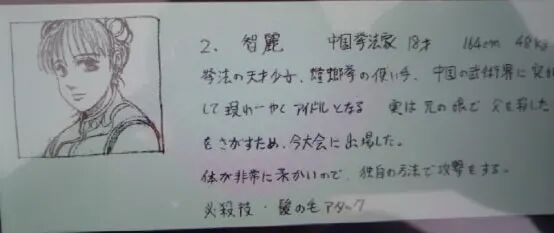 2. 智麗 中国拳法家 18才 164cm 48kg
拳法の天才少女、蟷螂拳の使い手、中国の武術界に突
して現れ一やくアイドルとなる 実は兄の で 父を殺した
をさがすため、今大会に出場した。
体が非常に柔かいので、独自の方法で攻撃をする。
必殺技・髪の毛アタック